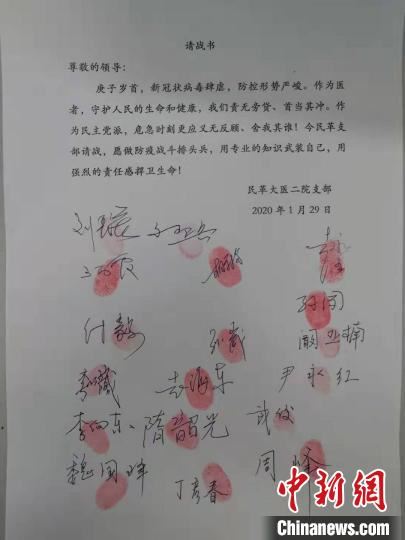 请战书
尊敬的领导：
庚子岁首，新冠状病毒肆虐，防控形势严峻。作为医
者，守护人民的生命和健康，我们责无旁贷、首当其冲。作
为民主党派，危急时刻更应义无反顾、舍我其谁！今民革支
部请战，愿做防疫战斗排头兵，用专业的知识武装自己，用
强烈的责任感捍卫生命！
民革大医二院支部
2020 年 1 月 29 日
付毅
李巍
尹永红
李向东、隋韶光
武俊
魏国峰
丁彦春
周峰
中新网
www.chinanews.com